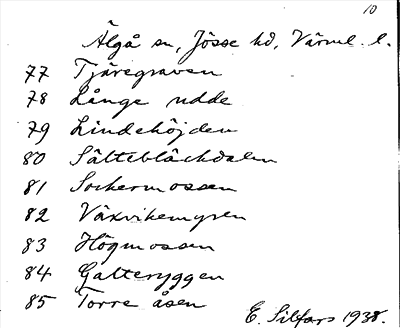 10
Älgå sn, Jösse hd, Värml. l.
77 Tjäregraven
78 Långe udde
79 Lindehöjden
80 Sältebläckdalen
81 Sockermossen
82 Växvikemyren
83 Högmossen
84 Galteryggen
85 Torre åsen
E. Silfors 1938.